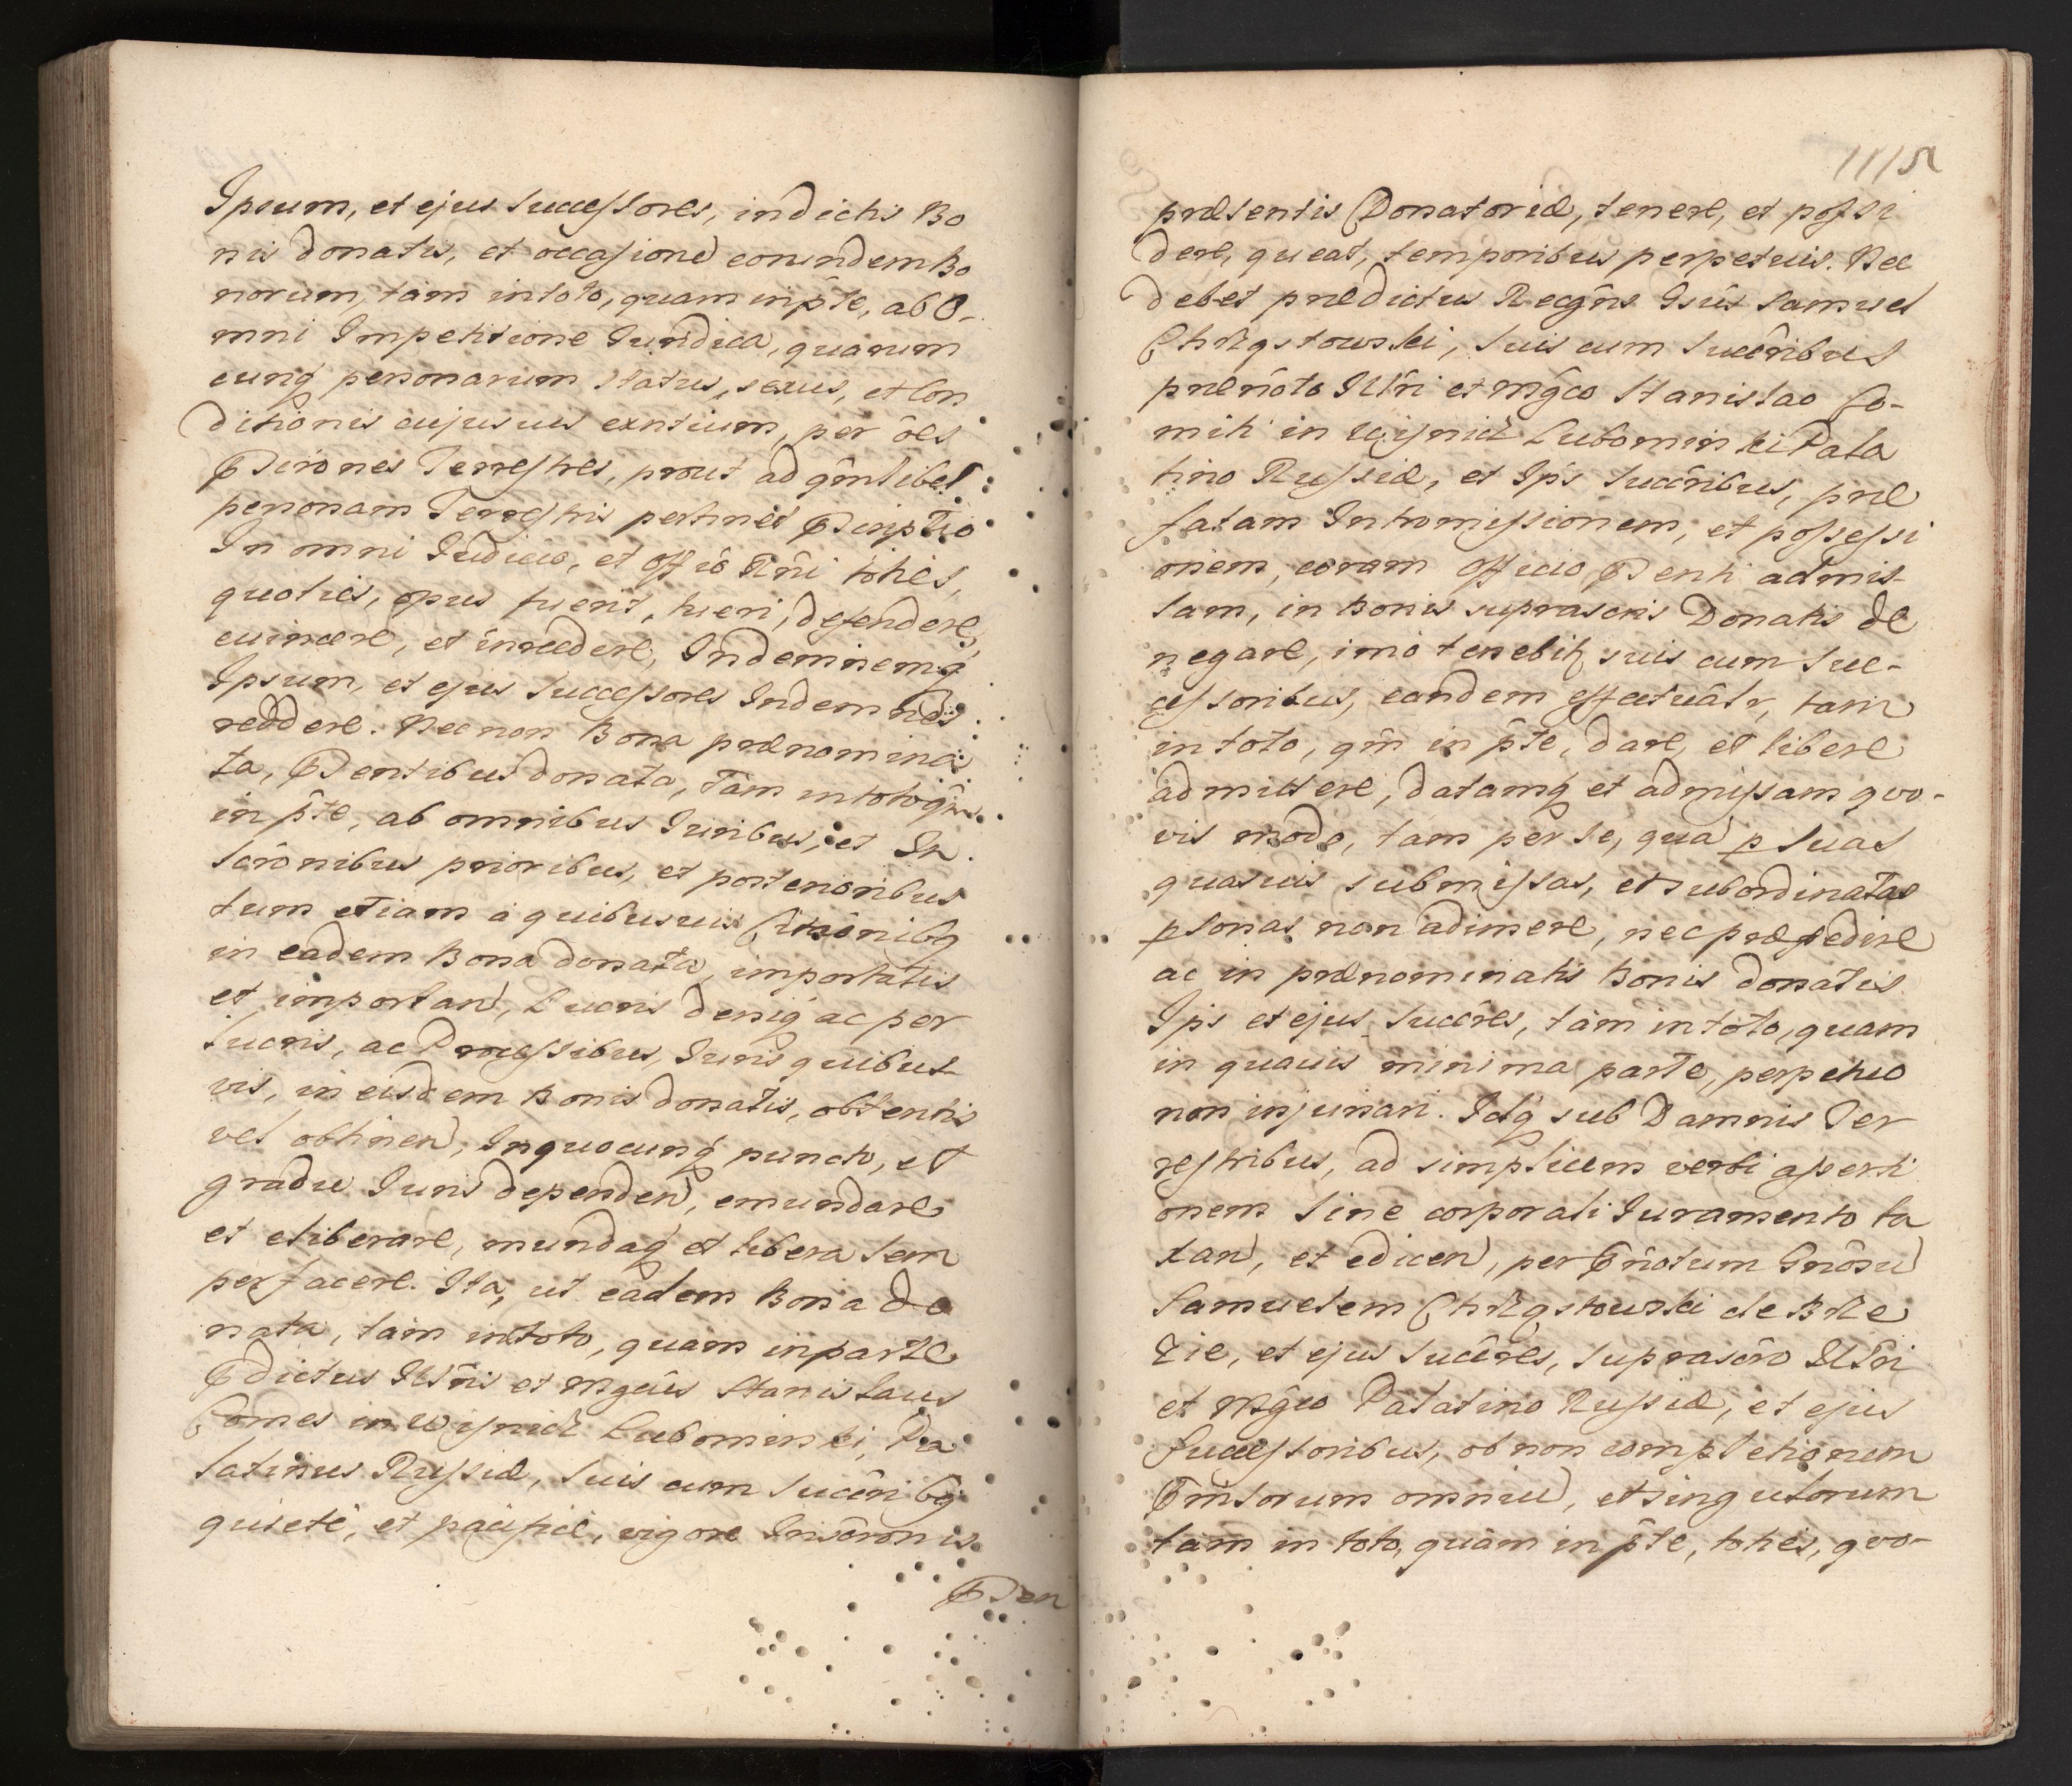 Ipsum, et ejus successores, in dictis Bo
nis donatis, et occasione eorundem Bo
norum, tàm in toto, quam in pte, ab O-
mni Impetitione Juridica, quarum
cunq personarum status, sexus, et Con
ditionis cujusuis exntium, per oes
Pscriones Terrestres, prout ad qmlibet
personam Terrestris pertinet Pscriptio
In omni Iudicio, et Offiô Rñi toties,
quoties, opus fuerit, tueri, defendere,
euincere, et inrcedere, Indemnemq
Ipsum, et ejus successores Indemnes
reddere. Necnon Bona prænomina
ta, Psentibus donata, Tàm in toto qm
in pte, ab omnibus Juribus, et In
scrônibus prioribus, et posterioribus
tum etiam à quibusuis
in eadem Bona donata, importatis
et importan, Lucris deniq ac per
lucris, ac Processibus, Juris quibus
vis, in eisdem Bonis donatis, obtentis
vel obtinen, In quocunq puncto, et
gradu Juris dependen, emundare
et eliberare, mundaq et libera sem
per facere. Ita, ut eadem Bona do
nata, tàm in toto, quàm in parte
Pdictus Illris et Mgcus Stanislaus
Comes in Wisnicz Lubomirski, Pa
latinus Russiæ, suis cum succribq
quietè, et pacificè, vigore Inscrônis
Psen
1115
præsentis Donatoriæ, tenere, et possi
dere, queat, temporibus perpetuis. Nec
debet prædictus Recgns Gsus Samuel
Chrząstowski, suis cum succribus
prænôto Illri et Mgco Stanislao Co-
miti in Wisnicz Lubomirski Pala
tino Russiæ, et Ips succribus, præ
fatam Intromissionem, et possessi
onem, coram Officio Psenti admis-
sam, in Bonis suprascris Donatis de
negare, imò tenebit suis cum suc-
cessoribus, eandem effectuâtr, tam
in toto, qm in pte, dare, et libere
admittere, datamq et admissam quo-
vis modo, tàm per se, quà p suas
quasuis submissas, et subordinatas
psonas non adimere, nec præpedire
ac in prænominatis Bonis donatis
Ips et ejus succres, tàm in toto, quam
in quauis minima parte, perpetuo
non injuriari. Idq sub Damnis Ter
restribus, ad simplicem verbi asserti
onem sine corporali Juramento ta
xan, et edicen, per Pnôtum Gnôsu
Samuelem Chrząstowski de Brze
zie, et ejus succres, suprascro Illri
et Mgco Palatino Russiæ, et ejus
Successoribus, ob non completionem
Pmissorum omniu, et singulorum
tàm in toto, quàm in pte, toties, quo-